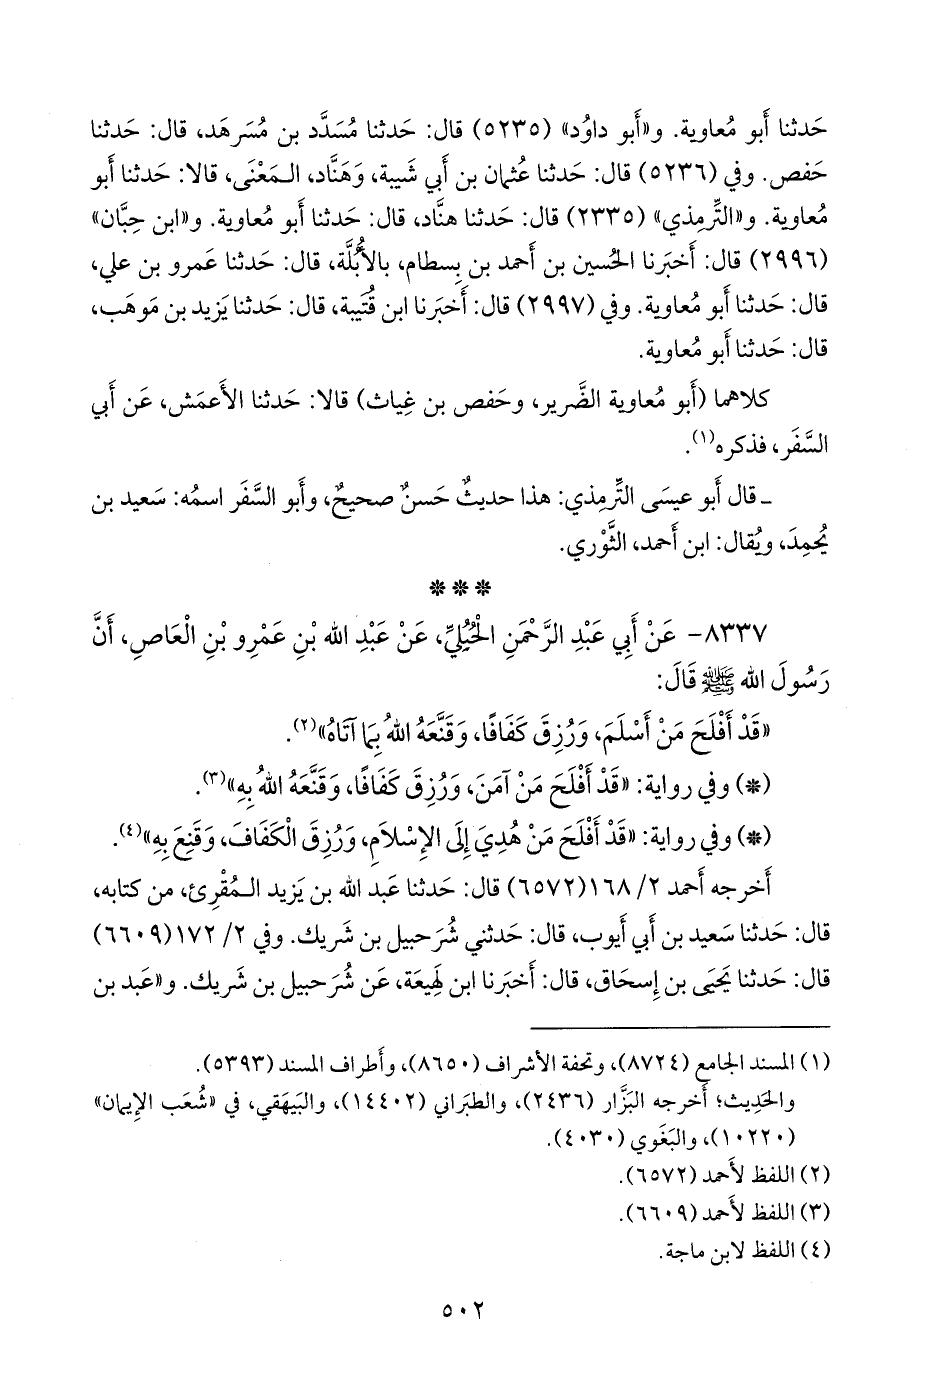 حَدثنا أَبو مُعاوية. و«أَبو داوُد» (٥٢٣٥) قال: حَدثنا مُسَدَّد بن مُسَرهَد، قال: حَدثنا
حَفص. وفي (٥٢٣٦) قال: حَدثنا عُثمان بن أَبي شَيبة، وَهَنَّاد، الـمَعْنَى، قالا: حَدثنا أَبو
مُعاوية. و«التِّرمِذي» (٢٣٣٥) قال: حَدثنا هنَّاد، قال: حَدثنا أَبو مُعاوية. و«ابن حِبَّان»
(٢٩٩٦) قال: أَخبَرنا الحُسين بن أَحمد بن بِسطام، بالأُبُلَّة، قال: حَدثنا عَمرو بن علي،
قال: حَدثنا أَبو مُعاوية. وفي (٢٩٩٧) قال: أَخبَرنا ابن قُتَيبة، قال: حَدثنا يَزيد بن مَوهَب،
قال: حَدثنا أَبو مُعاوية.
كلاهما (أَبو مُعاوية الضَّرير، وحَفص بن غِياث) قالا: حَدثنا الأَعمَش، عَن أَبي
السَّفَر، فذكره(١).
ـ قال أَبو عيسَى التِّرمِذي: هذا حديثٌ حَسنٌ صحيحٌ، وأَبو السَّفَر اسمُه: سَعيد بن
يُحمِدَ، ويُقال: ابن أَحمد، الثَّوْري.
* * *
٨٣٣٧- عَنْ أَبِي عَبْدِ الرَّحْمَنِ الْحُبُلِيِّ، عَنْ عَبْدِ الله بْنِ عَمْرِو بْنِ الْعَاصِ، أَنَّ
رَسُولَ الله ﷺ قَالَ:
«قَدْ أَفْلَحَ مَنْ أَسْلَمَ، وَرُزِقَ كَفَافًا، وَقَنَّعَهُ اللهُ بِمَا آتَاهُ»(٢).
(*) وفي رواية: «قَدْ أَفْلَحَ مَنْ آمَنَ، وَرُزِقَ كَفَافًا، وَقَنَّعَهُ اللهُ بِهِ»(٣).
(*) وفي رواية: «قَدْ أَفْلَحَ مَنْ هُدِيَ إِلَى الإِسْلَامِ، وَرُزِقَ الْكَفَافَ، وَقَنِعَ بِهِ»(٤).
أَخرجه أَحمد ٢/ ١٦٨(٦٥٧٢) قال: حَدثنا عَبد الله بن يَزيد الـمُقْرِئ، من كتابه،
قال: حَدثنا سَعيد بن أَبي أَيوب، قال: حَدثني شُرَحبيل بن شَريك. وفي ٢/ ١٧٢(٦٦٠٩)
قال: حَدثنا يَحيَى بن إِسحاق، قال: أَخبَرنا ابن لَهِيعَة، عَن شُرَحبيل بن شَريك. و«عَبد بن
(١) المسند الجامع (٨٧٢٤)، وتحفة الأشراف (٨٦٥٠)، وأَطراف المسند (٥٣٩٣).
والحَدِيث؛ أَخرجه البَزَّار (٢٤٣٦)، والطبَراني (١٤٤٠٢)، والبَيهَقي، في «شُعَب الإِيمان»
(١٠٢٢٠)، والبَغَوي (٤٠٣٠).
(٢) اللفظ لأَحمد (٦٥٧٢).
(٣) اللفظ لأَحمد (٦٦٠٩).
(٤) اللفظ لابن ماجة.
٥٠٢